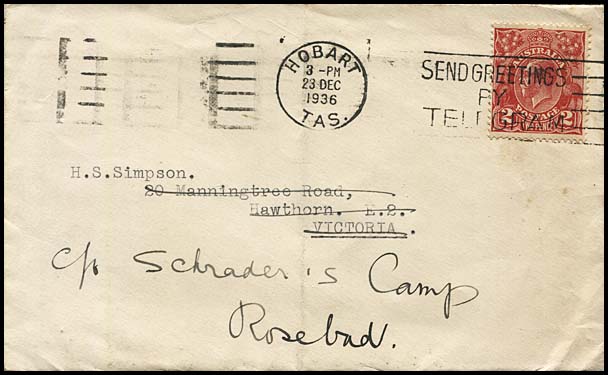 HOBART
3-PM
23 DEC
1936
TAS.
SEND GREETINGS
BY
TELEGRAM
H.S.Simpson.
20 Manningtree Road,
Hawthorn. E.2.
VICTORIA.
c/o Schrader's Camp
Rosebud.